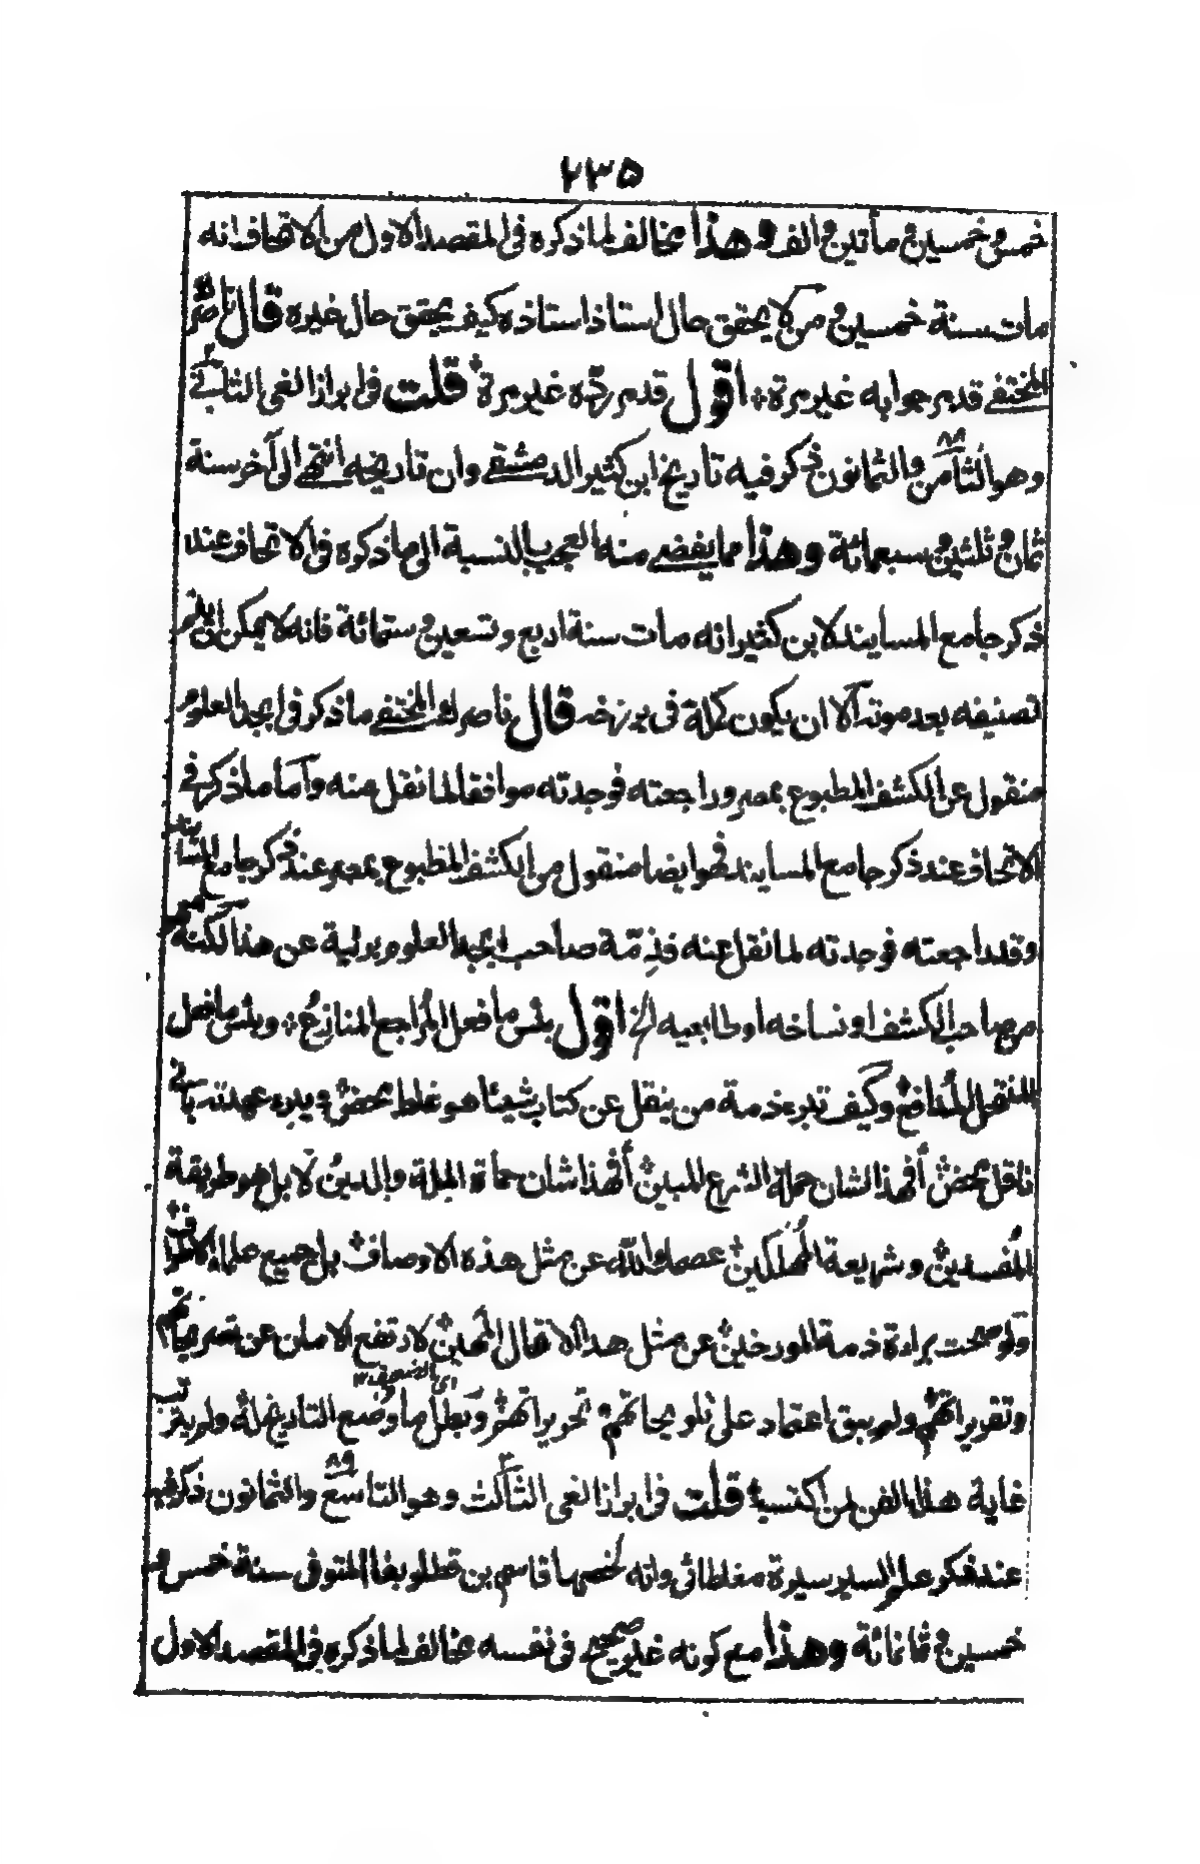 ٢٣٥
خمس وخمسين ومأتين والف وهذا مخالف لما ذكره فى المقصد الاول من الاتحاف انه
مات سنة خمسين ومن لا يحقق حال استاذ استاذه كيف يحقق حال غيره قال ناصرك
المختفے قد مر جوابه غير مرة ÷ اقول قد مر ردّه غير مرة قلت فى ابراز الغى الثانے
وهو الثامن والثمانون ٨٨ ذكر فيه تاريخ ابن كثير الدمشقے وان تاريخه انتهے الى آخر سنة
ثمان وثلثين وسبعمائة وهذا مما يفضے منه العجب بالنسبة الى ما ذكره فى الاتحاف عند
ذكر جامع المسايند لابن كثير انه مات سنة اربع وتسعين وستمائة فانه لا يمكن ان يتم
تصنيفه بعد موته الا ان يكون كمله فى برزخه قال ناصرك المختفے ما ذكر فى ابجد العلوم
منقول عن الكشف المطبوع بمصر وراجعته فوجدته موافقا لما نقل عنه وأما ما ذكر فے
الاتحاف عند ذكر جامع المسايند فهو ايضا منقول من الكشف المطبوع بمصر عند ذكر جامع المسانيد
وقد راجعته فوجدته لما نقل عنه فذمّة صاحب ابجد العلوم بريئة عن هذا لكنه
من صاحب الكشف او نساخه او طابعيه الخ اقول بئس ما فعل المراجع المنازع ÷ وبئس ما فعل
المنتحل المدافع وكيف تبرء ذمة من ينقل عن كتاب شيئا هو غلط محض ويبرء عهدته بانے
ناقل محض أفهذا شان حملة الشرع المبين أفهذا شان حماة الملة والدين لا بل هو طريقة
المفسدين وشريعة المهلكين عصمك الله عن مثل هذه الاوصاف بل جميع علماء الاطراف
ولو صحت براءة ذمة المورخين عن مثل هذا الاقال المهين لارتفع الامان عن تصريحاتهم
وتقريراتهم ولم يبق اعتماد على تلويحاتهم وتحريراتهم وبطل ما وضع اى التصنيف ١٢ التاريخ له ولم يترتب
غاية هذا الفن لمن اكتسبه قلت فى ابراز الغى الثالث وهو التاسع والثمانون ٨٩ ذكر فيه
عند ذكر علم السير سيرة مغلطائى وانه لخصها قاسم بن قطلوبغا المتوفى سنة خمس و
خمسين وثمانمائة وهذا مع كونه غير صحيح فى نفسه مخالف لما ذكره فى المقصد الاول